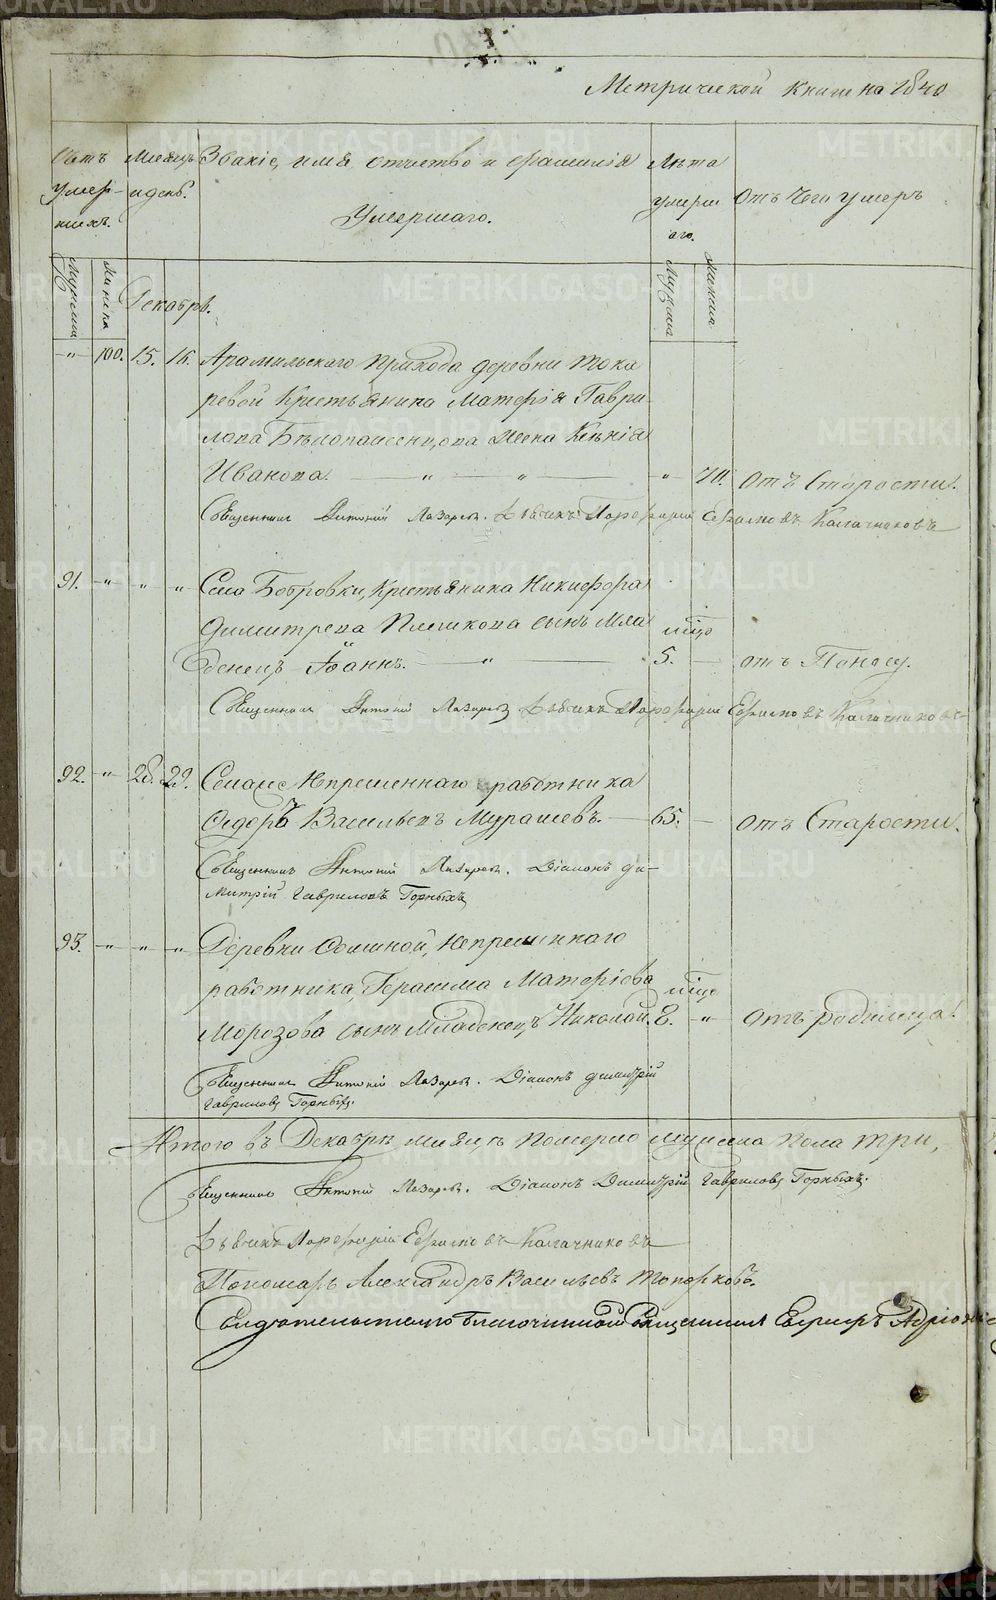 Метрической книги на 1840
Счетъ умер-шихъ. Месяцъ и день. Званiе, имя отчество и фамилiя Умершаго. Лѣта умерш аго. Отъ чего умеръ
Мужска Женска Мужска Женска
Декабрь.
-"- 100. 15. 16. Арамильскаго прихода деревни Тока
ревой Крестьянина Матфiя Гаври-
лова Бѣлопашенцова жена Ксѣнiя
Иванова. — " — " — " 70. отъ Старости.
Священникъ Антонiй Лазаревъ. Дьячикъ Порфирiй Ефимовъ Калачниковъ
91. -"- " " Села Бобровки, Крестьянина Никифора
Димитрева Плешкова сынъ Мла
денецъ Iоаннъ. — " — мѣцо 5. — отъ Поносу.
Священникъ Антонiй Лазаревъ Дьячикъ Порфирiй Ефимовъ Калачниковъ
92. -"- 28. 29. Селаже Непременнаго работника
Федоръ Васильевъ Мурашевъ. — 65. — отъ Старости.
Священникъ Антонiй Лазаревъ. Дiаконъ Ди-
митрiй Гавриловъ Горныхъ
93. -"- " -"- Деревни Непременнаго
работника, Герасима Матфiева
Морозова сынъ Младенецъ Николай. мѣцо 8. -"- отъ родимца.
Священникъ Антонiй Лазаревъ. Дiаконъ Димитрiй
Гавриловъ Горныхъ.
Итого въ Декабрѣ месяцѣ померло мужеска пола три,
Священникъ Антонiй Лазаревъ. Дiаконъ Димитрiй Гавриловъ Горныхъ.
Дьячикъ Порфирiй Ефимовъ Калачниковъ
Пономарь Александръ Васильевъ Топорковъ.
Свидетельствовалъ благочинной Священникъ
METRIKI.GASO-URAL.RU